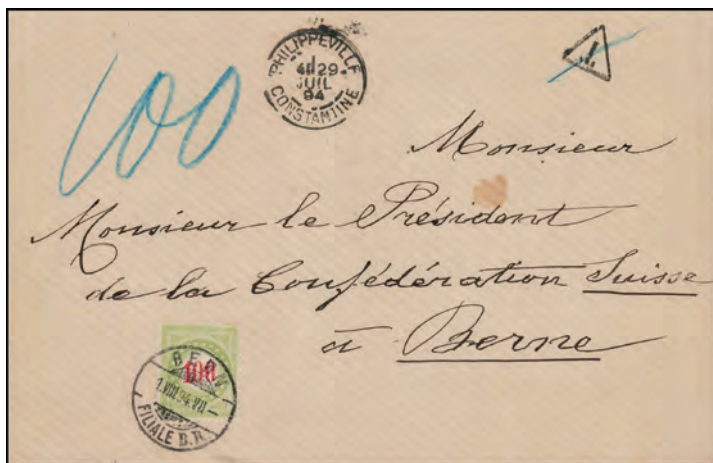 100
PHILIPPEVILLE
29
JUIL
94
CONSTANTINE
T
Monsieur
Monsieur le Président
de la Confédération Suisse
à Berne
100
BERN
1.VIII.94.VII
FILIALE B.R.